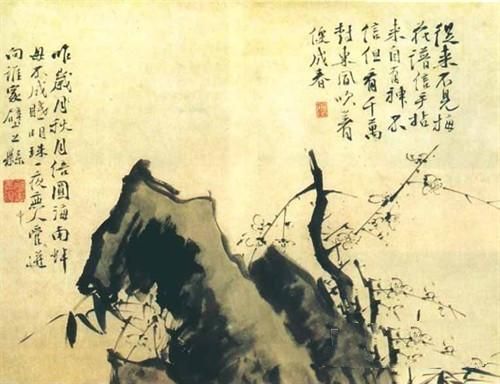 從來不見梅
花譜信手拈
來自有神不
信但看千萬
樹東風吹著
便成春
昨歲月秋月倍圓海南蚌
母不成眠明珠一夜無人管迸
向誰家壁上懸
中